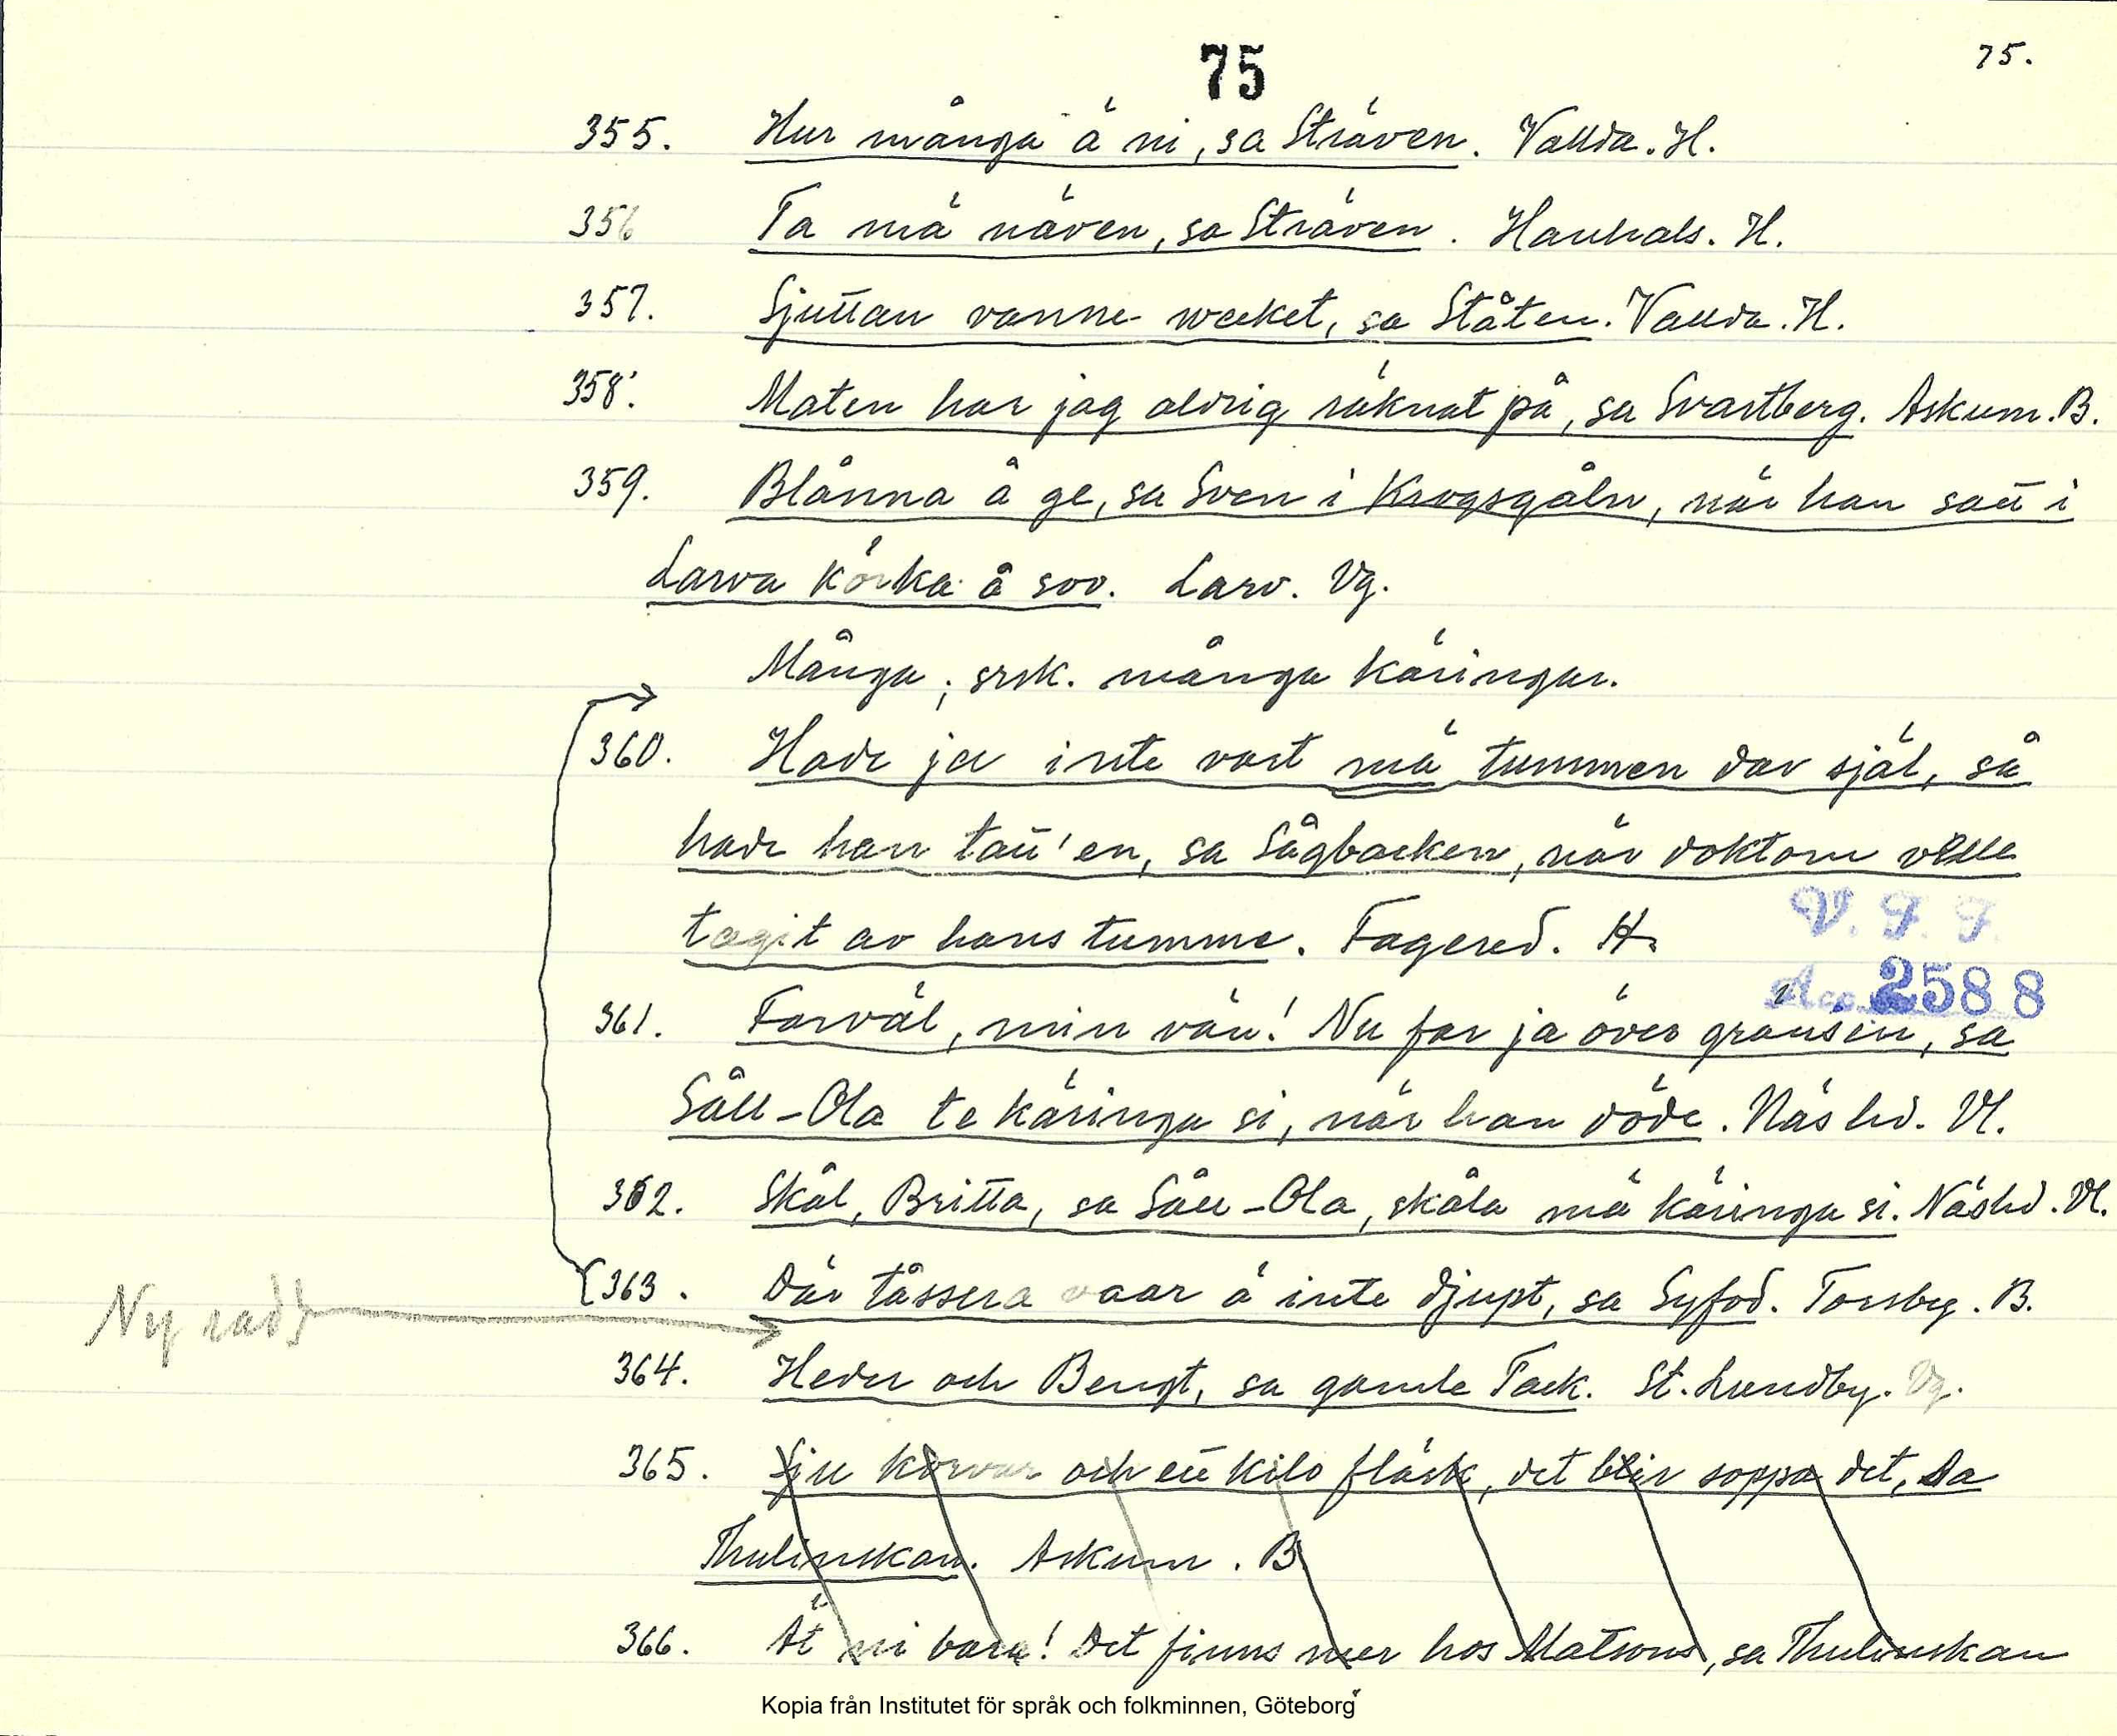 75
75.
355. Hur många ä ni, sa Sträven. Vallda. H.
356 Ta mä näven, sa Sträven. Hanhals. H.
357. Sjuttan vanne- wecket, sa Ståten. Vallda. H.
358. Maten har jag aldrig räknat på, sa Svartberg. Askum. B.
359. Blånna å ge, sa Sven i Krogsgåln, när han satt i
Larva körka å sov. Larv. Vg.
Många; srsk. många käringar.
360. Hade ja inte vart mä tummen dar själ, så
hade han tatt'en, sa Sågbacken, när doktorn ville
tagit av hans tumme. Fagered. H.
V. F. F.
Acc. 2588
361. Farväl, min vän! Nu far ja över gränsen, sa
Såll-Ola te käringa si, när han döde. Näshd. Vl.
362. Skål, Britta, sa Såll-Ola, skåla mä käringa si. Näshd. Vl.
363. Där tåssera vaar ä inte djupt, sa Syfod. Torsby. B.
Ny rad
364. Heder och Bengt, sa gamle Tack. St. Lundby. Vg.
365. Sju korvar och ett kilo fläsk, det blir soppa det, sa
Thulinskan. Askum. B.
366. Ät ni bara! Det finns mer hos Matsons, sa Thulinskan
Kopia från Institutet för språk och folkminnen, Göteborg